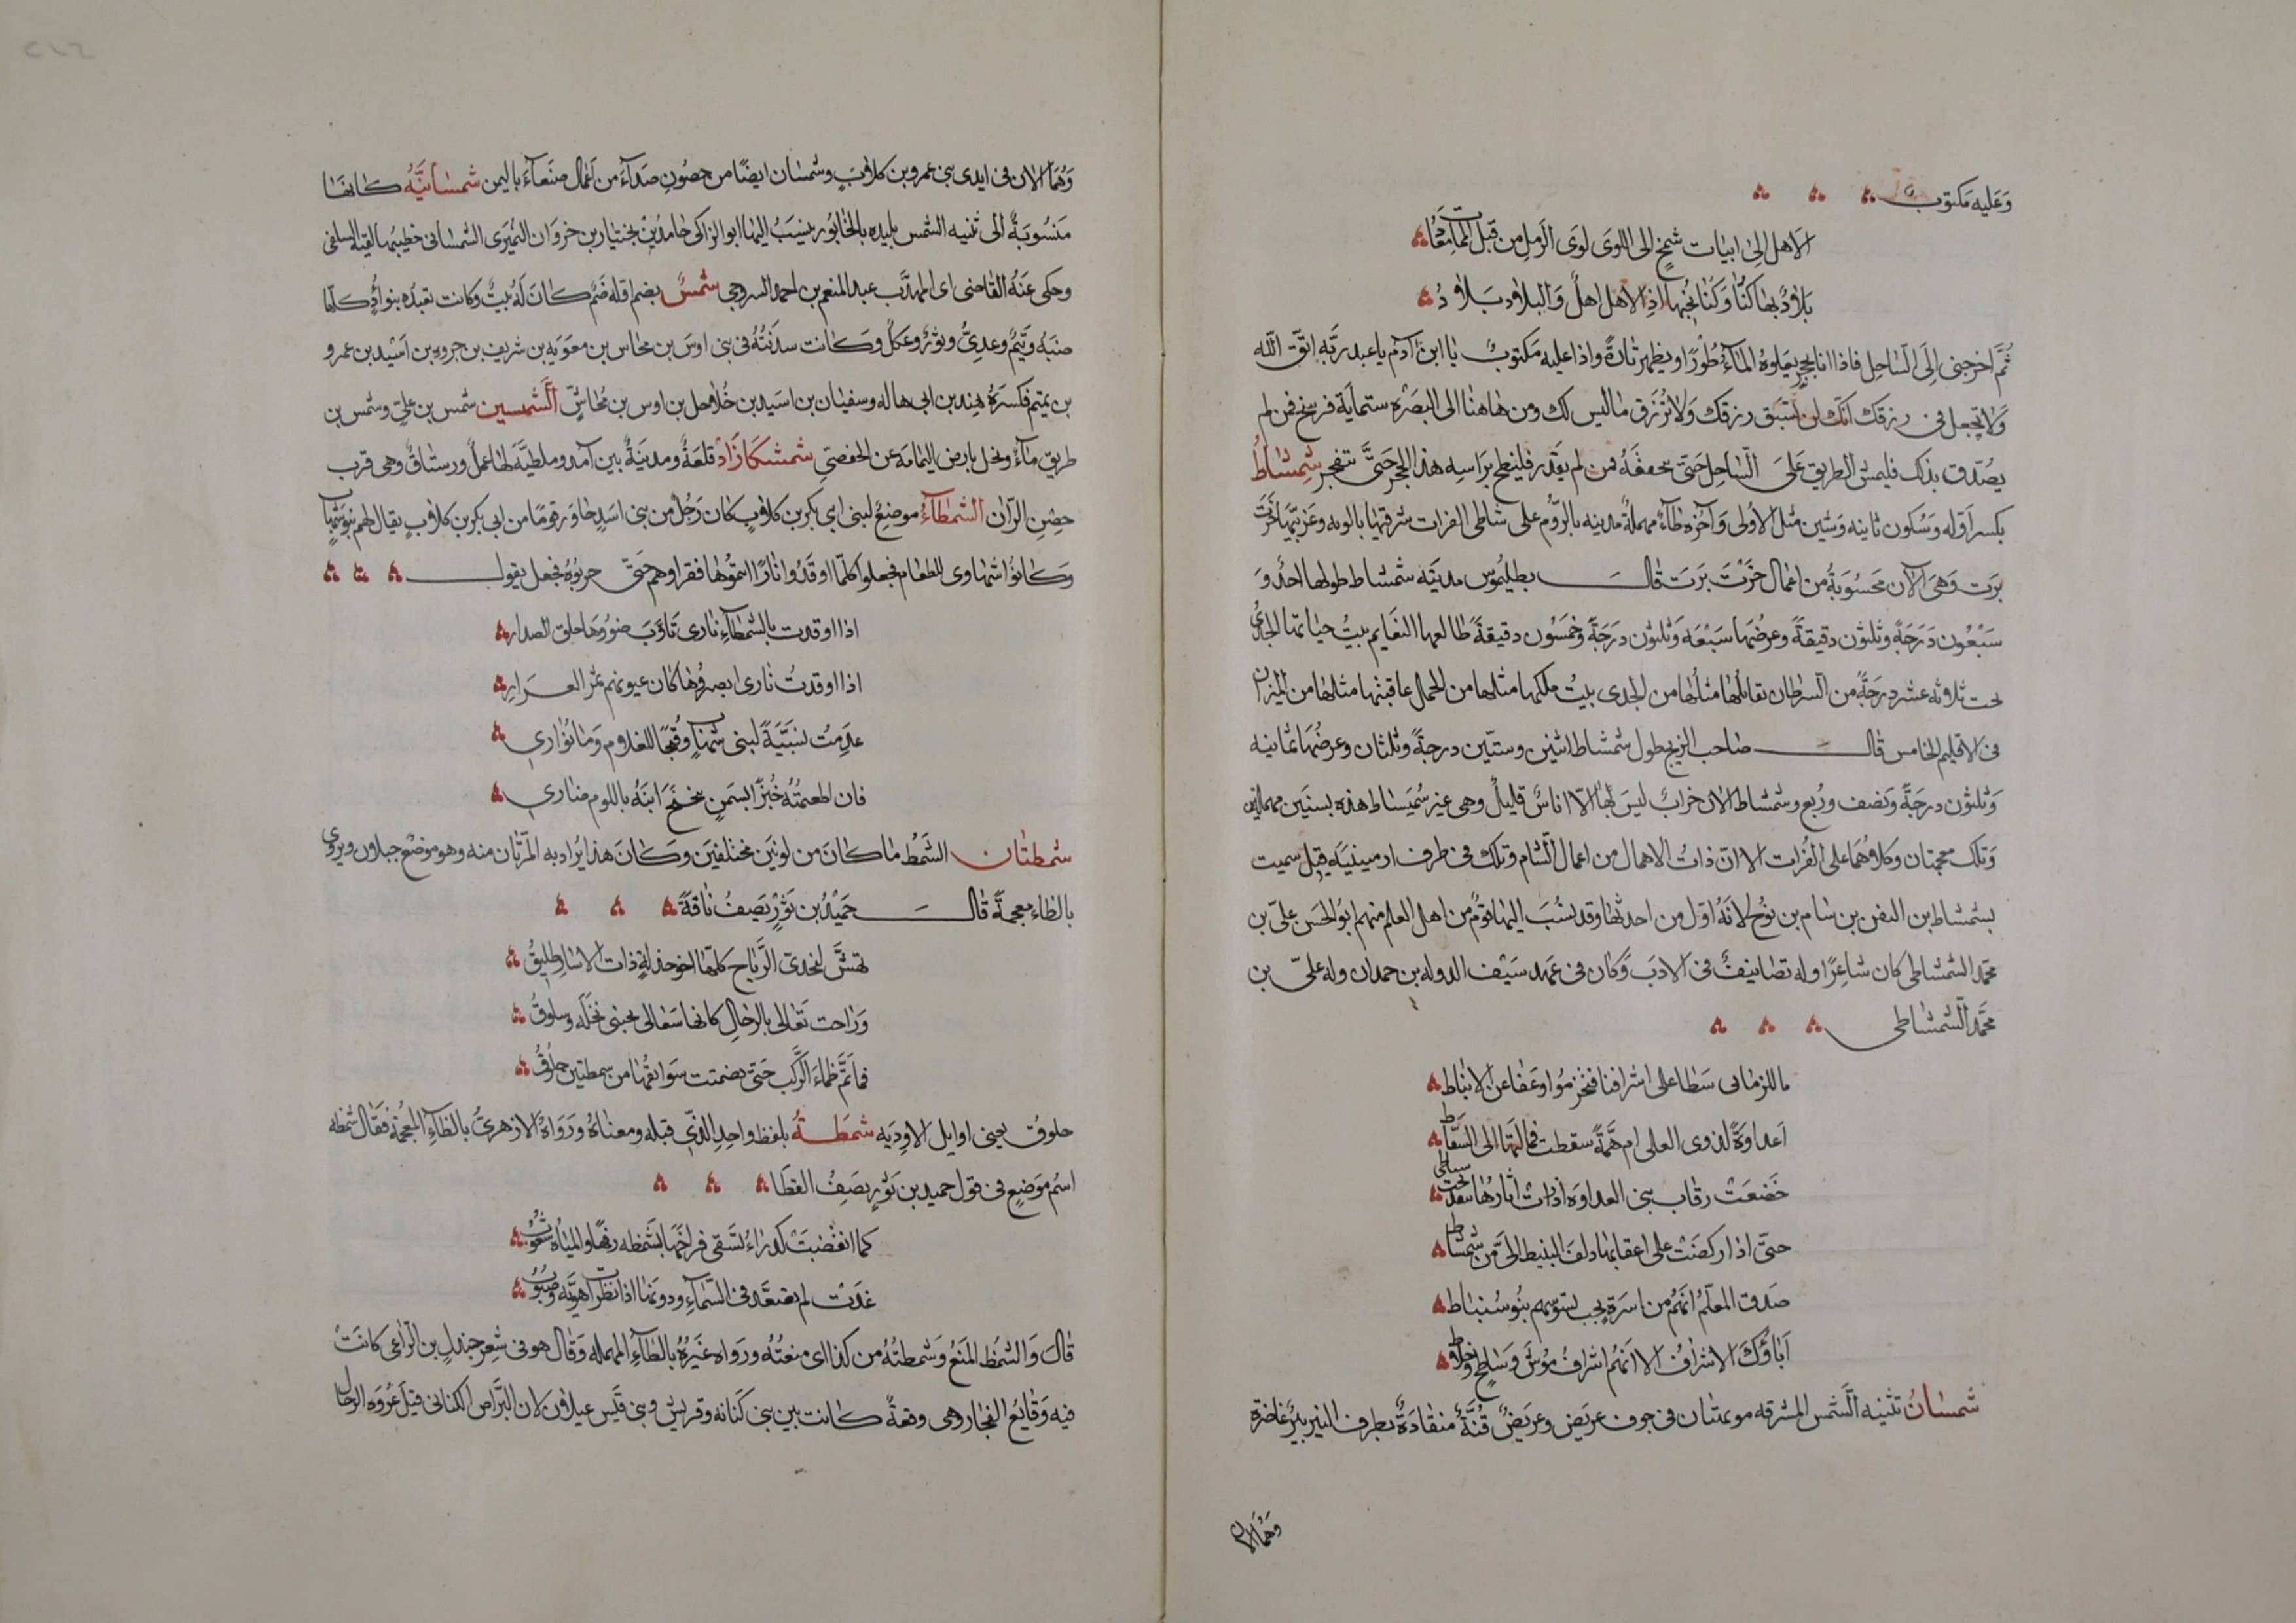 وَعَليه مَكتوب
الاَ هل الى ابيات شمخ الى اللوى لوى الرمل من قبل الممات معاد
بلاد بها كنّا وكنا نحبها اذ الاهل اهلٌ والبلاد بلاد
ثُمَّ اخرجنى إلَى السَّاحل فاذا انا بحجر يعلوه الماءُ طَوْرًا ويظهر تارةً واذا عليه مَكتوبٌ يا ابن آدم يا عبد ربّه اتق الله
وَلا تعجل فى رزقك انّك لن تسبق رزقك وَلا تُرْزق ما ليس لك ومن هاهنا الى البَصْره ستماية فرسخ فمن لم
يصُدق بذلك فليمش الطريق عَلىَ السَّاحل حَتّى يتحققَهُ فمن لم يقدر فلينطح براسه هذا الحجر حَتّى ينفجر شمشاطُ
بكسر اوّله وَسُكون ثانيه وَشين مثل الأولى وَآخره طاءٌ مهملةٌ مدينه بالرُّوم على شاطى الفرات شرقيها بالويه وغربيّها خرت
برت وَهىَ الآن محسُوبة من اعمال خرت برت قال بطليُوس مدينَه شمشاط طولها احد وَ
سَبْعُون دَرَجَةً وثلثون دقيقةً وعرضُها سَبْعَه وَثلثون درَجَةً وَخمسُون دقيقةً طالعها النعايم بيتُ حياتها الجدىُ
تحت ثلاثه عشر درجَةً من السرطان تقابلها مثلُها من الجدى بيتُ ملكها مثلها من الحمل عاقبتها مثلها من الميزان
فى الاقليم الخامس قال صاحب الزيج طول شمشاط اثنين وستّين درجةً وثلثان وعرضُها ثمانيه
وَثلثون درجَةً وَنصف ورُبع وشمشاط الان خرابٌ ليسَ بها الّا اناسٌ قليلٌ وهى غير سُميَساط هذه بسنَين مهملتين
وَتلك معجمتان وكلاهُما على الفُرات الا انّ ذاتُ الاهمال من اعمال الشّام وتلك فى طرف ارمينيَه قيل سميت
بشمشاط بن اليفن بن سَام بن نوُح لانَهُ اوّل من احدثها وقد نُسِبَ اليها قومٌ من اهل العلم منهم ابوُ الحسَن علىّ بن
محمّد الشمشاطى كان شاعرًا وله تصانيفُ فى الادب وَكان فى عَهد سَيْف الدوله بن حمدان وله علىّ بن
محمَّد الشمشاطى
ما للزمان سَطا على اشرافنا فتخرمُوا وعَفا عن الانباط
اَعداوَةً لذوى العلى ام همَّةً سقطت فمالَتها الى السقاط
خَضعَتْ رقاب بنى العداوه اذ رات آثارها تحت سياط
حتىّ اذا ركضَتْ على اعقابها دلف النبيط الىّ من شمشاط
صَدق المعلّمُ انهُم من اسرةٍ نجب تسوسهم بنُو سُنباط
اَباؤُكَ الاشرافُ الا انهُم اشرافُ مُوش وَساحٍ وخلاط
شمسَانُ تثنيه الشّمس المشرقه مويهتان فى جوف عريَض وعريَضٌ قُنَّةٌ منقادَةٌ بطرف النير نير غاضرة
وَهُما الان
وَهُما الان فى ايدى بنى عمرو بن كلابٍ وشمسَان ايضًا من حصُون صَداءَ من اعمال صَنعاَءَ باليمن شمسَانيَّهُ كانها
مَنسُوبةٌ الى تثنيه الشمس بليده بالخابُور ينسبُ اليها ابو الزاكى حامد بن بختيار بن خزوان النُميَرى الشمسانى خطيبها لقيه السلفى
وحكى عنَهُ القاضى اى المهذَّب عبد المنعم بن احمد السروجى شمسُ بضم اوّله صَنمٌ كانَ لَهُ بيتٌ وكانت تعبُده بنو اُدٍّ كلّها
ضبَهُ وَتيمٌ وعدِىٌّ وثورٌ وعكلٌ وَكانت سدنتُهُ فى بنى اوسَ بن مخاس بن معَويَه بن شريف بن جروه بن اسَيْد بن عمرو
بن تميم فكسرَهُ هند بن ابى هاله وسفيَان بن اسَيد بن حُلاحل بن اوس بن مُخاسٍ الشمسين شمس بن علىّ وشمس بن
طريق ماءٌ ونخل بارض اليمامَه عن الحفصىّ شمشكَازَاذ قلعَةٌ ومدينَةٌ بين آمد وملطيّةَ لها عملٌ ورستاقٌ وهى قرب
حصن الرّان الشمطاءُ موضعٌ لبنى ابى بكر بن كلابٍ كان رَجُلٌ من بنى اسَدٍ جاوَرَ قومًا من ابى بكر بن كلابٍ يقال لهم بنو شهاب
وَكانوُا شهاوى للطعَام فجعلوا كلّما اوقَدُوا نارًا اسمعُوها فقراوهم حَتى حربُوهُ فجعل يقول
اذا اوقدت بالشمطاَءِ نارى تاَوَّبَ ضوُوها خلق الصدار
اذا اوقدتُ نارى ابصرُوها كان عيونهم ثمر العَرَار
عدِمتُ نسَيَّةً لبنى شهابٍ وقُبْحًا للغلام وَما يُوَارى
فان اطعمتُهُ خُبْزًا بسمنٍ تنحنَحَ ابنَهُ باللوم ضارى
شمطتان الشَمُط ما كانَ من لونَين مختلفين وكانَ هذا يُراد به المرّتان منه وهو موضعٌ جبلان ويروى
بالظاء معجمةً قال حمَيْدُ بن ثوْرٍ يَصفُ ناقةً
تهشّ لنجدىّ الرَّيَاح كانها اخو خذلةٍ ذات الاسَار طليقُ
وَراحت تَعَالى بالرحَال كانها سعَالى بجنبى نخلَه وسلوقُ
فما تَمَّ ظماء الرَّكب حَتىّ تضمنت سَوابقُها من شمطتين حلوُقُ
حلوق يعنى اوايل الاودِيَه شمطَةُ بلفظ واحد الذّى قبله ومعناهُ ورَوَاهُ الازهرىُّ بالظاَءِ المعجمَة فقال شمظه
اسم مَوضِعٍ فى قول حميد بن ثوَرٍ يَصِفُ القطا
كما انقضبَتْ كدرَاءُ تسَقى فراخَها بشمَظه رفهًا والميَاهُ شعُوب
غدَتْ لم تصعّد فى السّماَءِ ودونها اذا نظرت اهويّةٌ وصَبُوب
قالَ وَالشمَظُ المنعُ وَشمظتُهُ من كذا اى منعتُهُ ورَوَاه غيَرُهُ بالطاَءِ المهمله وَقال هو فى شِعر جندلِ بن الراعى كانَتْ
فيه وَقايَعُ الفجار وهى وقعةٌ كانت بين بنى كنَانه وقريش وبنى قَيْس عيلان لان البرَّاض الكنانى قتِلَ عُروَه الرحّال